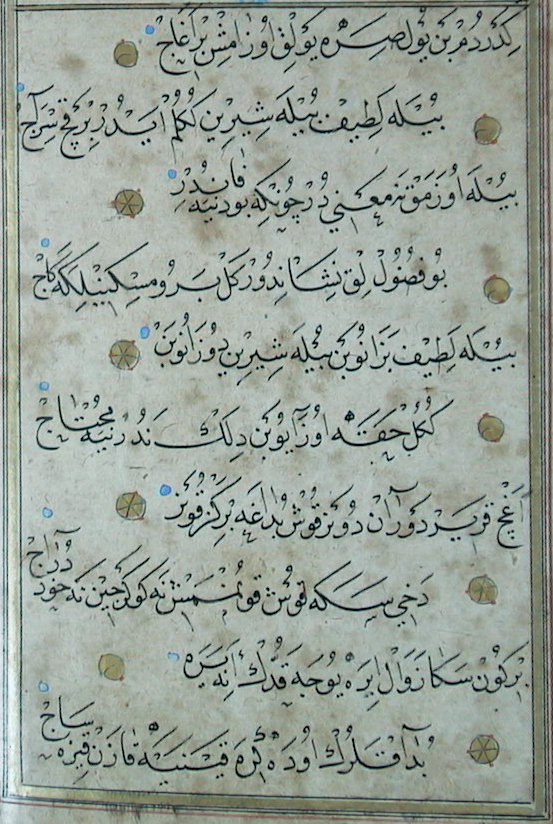 كدردم بن يول صره يولق اوزامش بر آغاج
بيله لطيف بيله شيرين كڭلم ايدر بر قچ سر آج
بيله اوزمق نه معني در چونكه بو دنيه فاندر
بو فضول لق نشاندور كل برو مسكينلكه كاج
بيله لطيف بزانوبن بيله شيرين دوزانوبن
كڭل حقه اوزايوبن دلك ندر نيه محتاج
آغچ قرير دوران دونر قوش بداغه بر كز قونر
دخي سكه قوش قونممش نه كوكرجين نه خود دراج
بر كون سكا زوال ايره يوجه قدك انه يره
بداقلرك اوده كره قينيه قازن قزه ساج